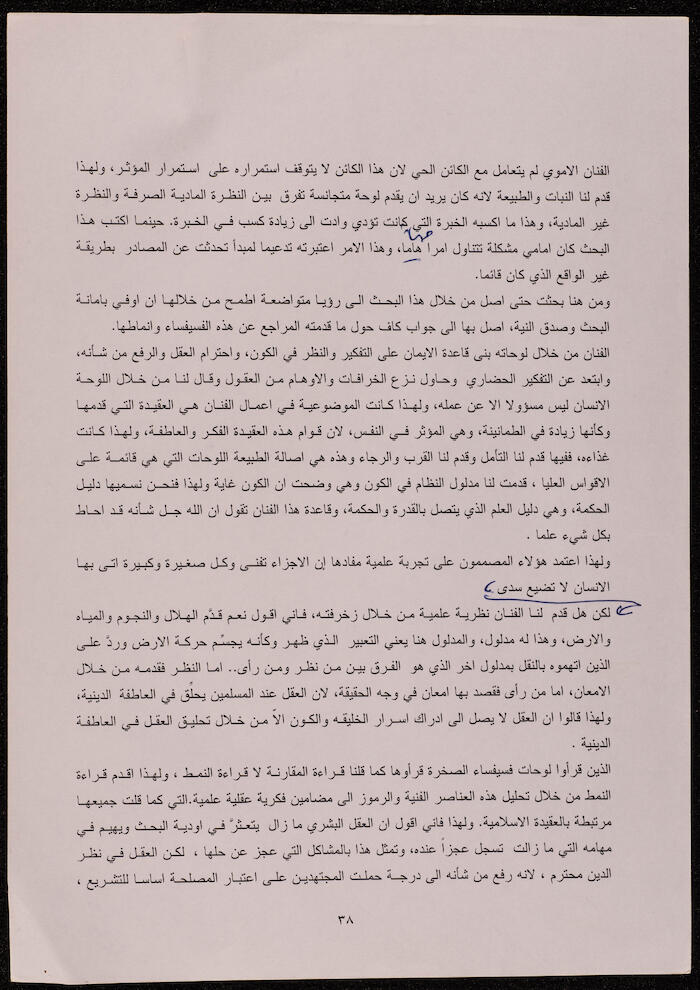 الفنان الاموي لم يتعامل مع الكائن الحي لان هذا الكائن لا يتوقف استمراره على استمرار المؤثر، ولهذا
قدم لنا النبات والطبيعة لانه كان يريد ان يقدم لوحة متجانسة تفرق بين النظرة المادية الصرفة والنظرة
غير المادية، وهذا ما اكسبه الخبرة التي كانت تؤدي وادت الى زيادة كسب في الخبرة. حينما اكتب هذا
البحث كان امامي مشكلة تتناول امرا هاما، وهذا الامر اعتبرته تدعيما لمبدأ تحدثت عن المصادر بطريقة
غير الواقع الذي كان قائما.
ومن هنا بحثت حتى اصل من خلال هذا البحث الى رؤيا متواضعة اطمح من خلالها ان اوفي بامانة
البحث وصدق النية، اصل بها الى جواب كاف حول ما قدمته المراجع عن هذه الفسيفساء وانماطها.
الفنان من خلال لوحاته بنى قاعدة الايمان على التفكير والنظر في الكون، واحترام العقل والرفع من شأنه،
وابتعد عن التفكير الحضاري وحاول نزع الخرافات والاوهام من العقول وقال لنا من خلال اللوحة
الانسان ليس مسؤولا الا عن عمله، ولهذا كانت الموضوعية في اعمال الفنان هي العقيدة التي قدمها
وكأنها زيادة في الطمانينة، وهي المؤثر في النفس، لان قوام هذه العقيدة الفكر والعاطفة، ولهذا كانت
غذاءه، ففيها قدم لنا التأمل وقدم لنا القرب والرجاء وهذه هي اصالة الطبيعة اللوحات التي هي قائمة على
الاقواس العليا ، قدمت لنا مدلول النظام في الكون وهي وضحت ان الكون غاية ولهذا فنحن نسميها دليل
الحكمة، وهي دليل العلم الذي يتصل بالقدرة والحكمة، وقاعدة هذا الفنان تقول ان الله جل شأنه قد احاط
بكل شيء علما .
ولهذا اعتمد هؤلاء المصممون على تجربة علمية مفادها إن الاجزاء تفنى وكل صغيرة وكبيرة اتى بها
الانسان لا تضيع سدى.
لكن هل قدم لنا الفنان نظرية علمية من خلال زخرفته، فاني اقول نعم قدَّم الهلال والنجوم والمياه
والارض، وهذا له مدلول، والمدلول هنا يعني التعبير الذي ظهر وكأنه يجسّم حركة الارض وردَّ على
الذين اتهموه بالنقل بمدلول اخر الذي هو الفرق بين من نظر ومن رأى.. اما النظر فقدمه من خلال
الامعان، اما من رأى فقصد بها امعان في وجه الحقيقة، لان العقل عند المسلمين يحلّق في العاطفة الدينية،
ولهذا قالوا ان العقل لا يصل الى ادراك اسرار الخليقه والكون الاّ من خلال تحليق العقل في العاطفة
الدينية .
الذين قرأوا لوحات فسيفساء الصخرة قرأوها كما قلنا قراءة المقارنة لا قراءة النمط ، ولهذا اقدم قراءة
النمط من خلال تحليل هذه العناصر الفنية والرموز الى مضامين فكرية عقلية علمية.التي كما قلت جميعها
مرتبطة بالعقيدة الاسلامية. ولهذا فاني اقول ان العقل البشري ما زال يتعثرَّ في اودية البحث ويهيم في
مهامه التي ما زالت تسجل عجزاً عنده، وتمثل هذا بالمشاكل التي عجز عن حلها ، لكن العقل في نظر
الدين محترم ، لانه رفع من شأنه الى درجة حملت المجتهدين على اعتبار المصلحة اساسا للتشريع ،
٣٨